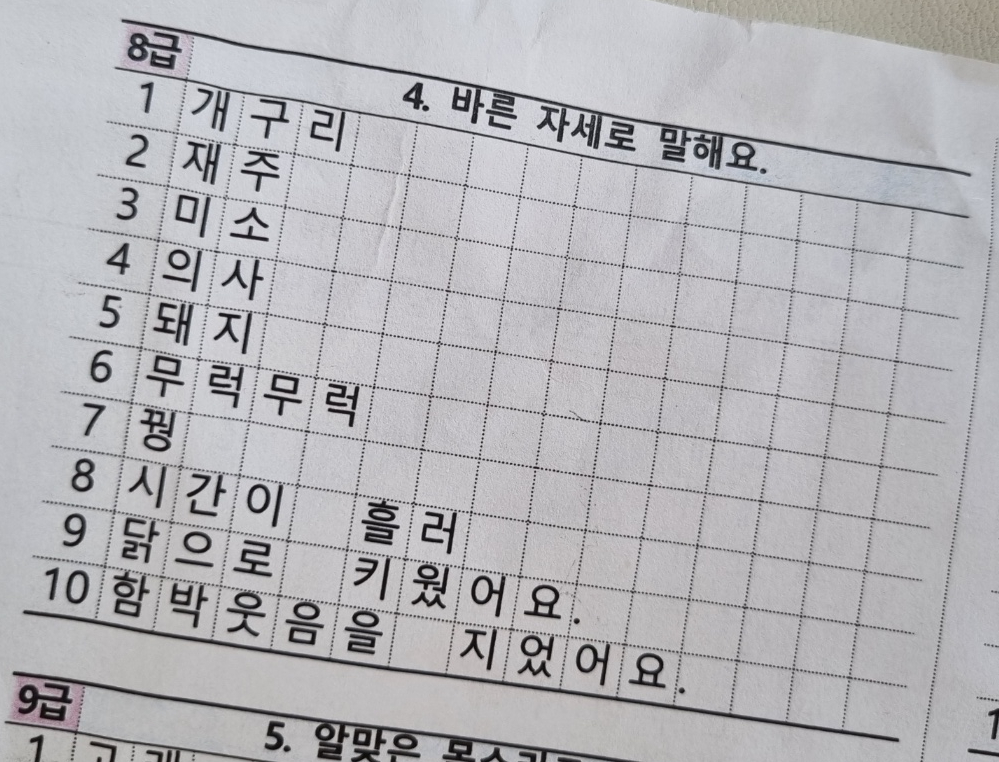 8급
4. 바른 자세로 말해요.
1 개구리
2 재주
3 미소
4 의사
5 돼지
6 무럭무럭
7 꿩
8 시간이 흘러
9 닭으로 키웠어요.
10 함박웃음을 지었어요.
9급
5. 알맞은
1